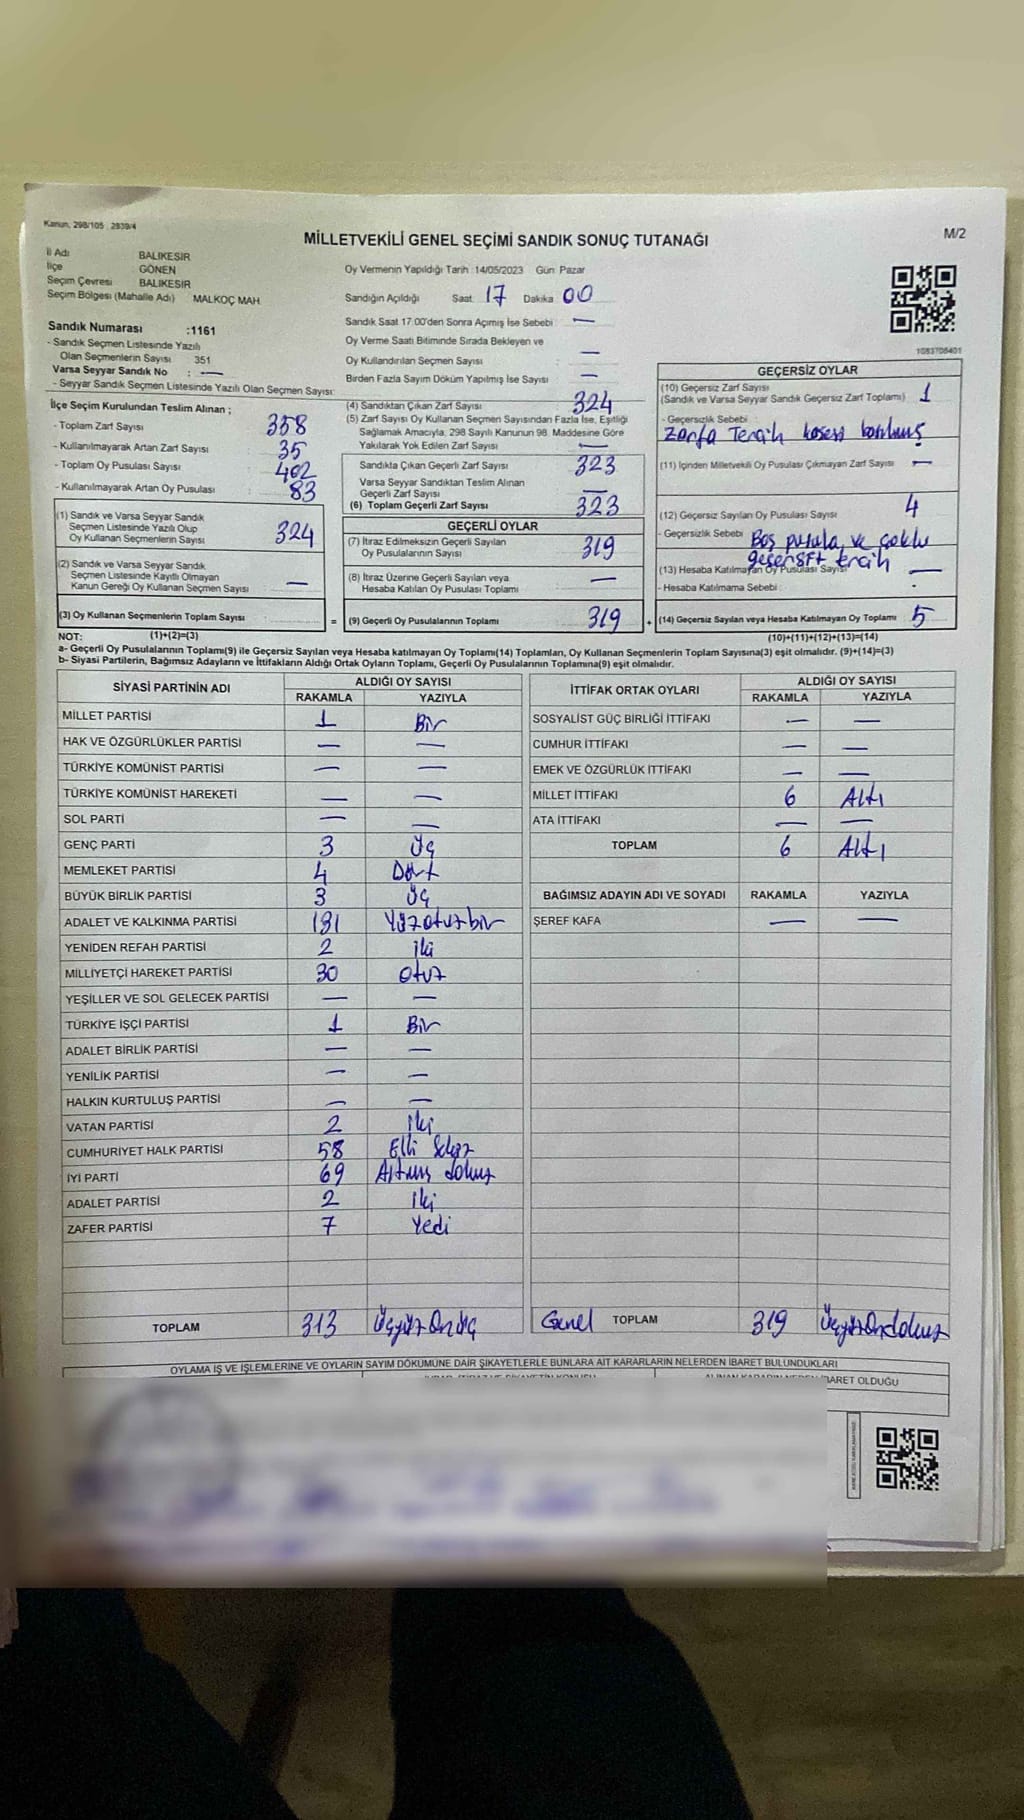 Kanun, 298/105 : 2839/4
M/2
MİLLETVEKİLİ GENEL SEÇİMİ SANDIK SONUÇ TUTANAĞI
İl Adı BALIKESİR
İlçe GÖNEN
Seçim Çevresi BALIKESİR
Seçim Bölgesi (Mahalle Adı) MALKOÇ MAH.
Sandık Numarası :1161
- Sandık Seçmen Listesinde Yazılı
Olan Seçmenlerin Sayısı 351
Varsa Seyyar Sandık No : —
- Seyyar Sandık Seçmen Listesinde Yazılı Olan Seçmen Sayısı:
İlçe Seçim Kurulundan Teslim Alınan ;
- Toplam Zarf Sayısı : 358
- Kullanılmayarak Artan Zarf Sayısı 35
- Toplam Oy Pusulası Sayısı 402
- Kullanılmayarak Artan Oy Pusulası : 83
(1) Sandık ve Varsa Seyyar Sandık
Seçmen Listesinde Yazılı Olup
Oy Kullanan Seçmenlerin Sayısı 324
(2) Sandık ve Varsa Seyyar Sandık
Seçmen Listesinde Kayıtlı Olmayan
Kanun Gereği Oy Kullanan Seçmen Sayısı : —
(3) Oy Kullanan Seçmenlerin Toplam Sayısı :
Oy Vermenin Yapıldığı Tarih :14/05/2023 Gün: Pazar
Sandığın Açıldığı Saat: 17 Dakika: 00
Sandık Saat 17:00'den Sonra Açılmış İse Sebebi : —
Oy Verme Saati Bitiminde Sırada Bekleyen ve
Oy Kullandırılan Seçmen Sayısı : —
Birden Fazla Sayım Döküm Yapılmış İse Sayısı : —
(4) Sandıktan Çıkan Zarf Sayısı : 324
(5) Zarf Sayısı Oy Kullanan Seçmen Sayısından Fazla İse, Eşitliği
Sağlamak Amacıyla, 298 Sayılı Kanunun 98. Maddesine Göre
Yakılarak Yok Edilen Zarf Sayısı : —
Sandıkla Çıkan Geçerli Zarf Sayısı 323
Varsa Seyyar Sandıktan Teslim Alınan
Geçerli Zarf Sayısı —
(6) Toplam Geçerli Zarf Sayısı : 323
GEÇERLİ OYLAR
(7) İtiraz Edilmeksizin Geçerli Sayılan
Oy Pusulalarının Sayısı : 319
(8) İtiraz Üzerine Geçerli Sayılan veya
Hesaba Katılan Oy Pusulası Toplamı —
= (9) Geçerli Oy Pusulalarının Toplamı : 319
1083708401
GEÇERSİZ OYLAR
(10) Geçersiz Zarf Sayısı
(Sandık ve Varsa Seyyar Sandık Geçersiz Zarf Toplamı) : 1
- Geçersizlik Sebebi :
Zarfa Tercih kaşesi basılmış
(11) İçinden Milletvekili Oy Pusulası Çıkmayan Zarf Sayısı : —
(12) Geçersiz Sayılan Oy Pusulası Sayısı : 4
- Geçersizlik Sebebi Boş pusula, ve çoklu
geçersiz tercih
(13) Hesaba Katılmayan Oy Pusulası Sayısı —
- Hesaba Katılmama Sebebi :
+ (14) Geçersiz Sayılan veya Hesaba Katılmayan Oy Toplamı : 5
NOT: (1)+(2)=(3) (10)+(11)+(12)+(13)=(14)
a- Geçerli Oy Pusulalarının Toplamı(9) ile Geçersiz Sayılan veya Hesaba katılmayan Oy Toplamı(14) Toplamları, Oy Kullanan Seçmenlerin Toplam Sayısına(3) eşit olmalıdır. (9)+(14)=(3)
b- Siyasi Partilerin, Bağımsız Adayların ve İttifakların Aldığı Ortak Oyların Toplamı, Geçerli Oy Pusulalarının Toplamına(9) eşit olmalıdır.
SİYASİ PARTİNİN ADI ALDIĞI OY SAYISI
RAKAMLA YAZIYLA
MİLLET PARTİSİ 1 Bir
HAK VE ÖZGÜRLÜKLER PARTİSİ — —
TÜRKİYE KOMÜNİST PARTİSİ — —
TÜRKİYE KOMÜNİST HAREKETİ — —
SOL PARTİ — —
GENÇ PARTİ 3 Üç
MEMLEKET PARTİSİ 4 Dört
BÜYÜK BİRLİK PARTİSİ 3 Üç
ADALET VE KALKINMA PARTİSİ 131 Yüzotuzbir
YENİDEN REFAH PARTİSİ 2 iki
MİLLİYETÇİ HAREKET PARTİSİ 30 otuz
YEŞİLLER VE SOL GELECEK PARTİSİ — —
TÜRKİYE İŞÇİ PARTİSİ 1 Bir
ADALET BİRLİK PARTİSİ — —
YENİLİK PARTİSİ — —
HALKIN KURTULUŞ PARTİSİ — —
VATAN PARTİSİ 2 iki
CUMHURİYET HALK PARTİSİ 58 Elli Sekiz
İYİ PARTİ 69 Altmış dokuz
ADALET PARTİSİ 2 iki
ZAFER PARTİSİ 7 Yedi
TOPLAM 313 ÜçyüzOnüç
İTTİFAK ORTAK OYLARI ALDIĞI OY SAYISI
RAKAMLA YAZIYLA
SOSYALİST GÜÇ BİRLİĞİ İTTİFAKI — —
CUMHUR İTTİFAKI — —
EMEK VE ÖZGÜRLÜK İTTİFAKI — —
MİLLET İTTİFAKI 6 Altı
ATA İTTİFAKI — —
TOPLAM 6 Altı
BAĞIMSIZ ADAYIN ADI VE SOYADI RAKAMLA YAZIYLA
ŞEREF KAFA — —
Genel TOPLAM 319 ÜçyüzOndokuz
OYLAMA İŞ VE İŞLEMLERİNE VE OYLARIN SAYIM DÖKÜMÜNE DAİR ŞİKAYETLERLE BUNLARA AİT KARARLARIN NELERDEN İBARET BULUNDUKLARI
İBARET OLDUĞU